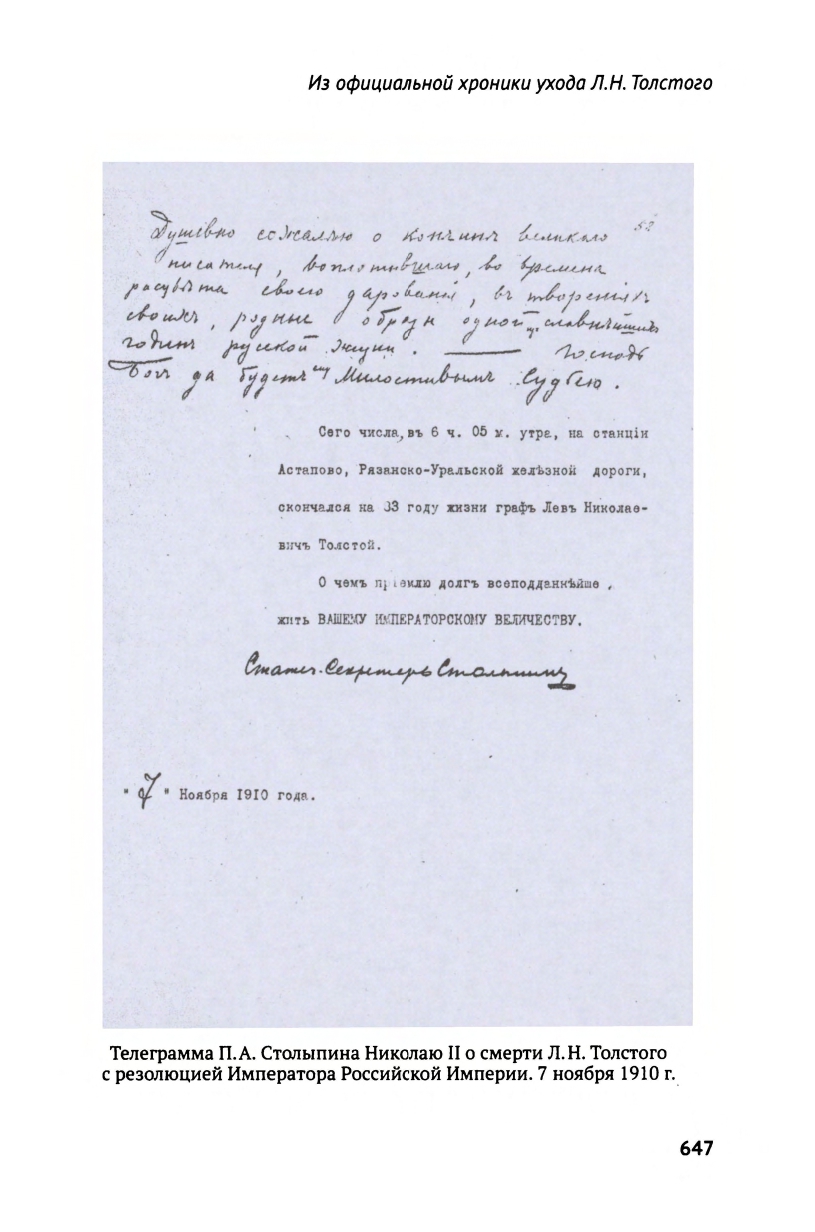 Из официальной хроники ухода Л.Н. Толстого
52
Душевно сожалѣю о кончинѣ великаго
писателя, воплотившаго, во времена
расцвѣта своего дарованія, въ твореніяхъ
своихъ, родные образы одной изъ славнѣйшихъ
годинъ русской жизни. — Господь
Богъ да будетъ ему Милостивымъ Судьею.
Сего числа, въ 6 ч. 05 м. утра, на станціи
Астапово, Рязанско-Уральской желѣзной дороги,
скончался на 83 году жизни графъ Левъ Николае-
вичъ Толстой.
О чемъ пріемлю долгъ всеподданнѣйше
жить ВАШЕМУ ИМПЕРАТОРСКОМУ ВЕЛИЧЕСТВУ.
Статсъ-Секретарь Столыпинъ
" 7 " Ноября 1910 года.
Телеграмма П.А. Столыпина Николаю II о смерти Л.Н. Толстого
с резолюцией Императора Российской Империи. 7 ноября 1910 г.
647